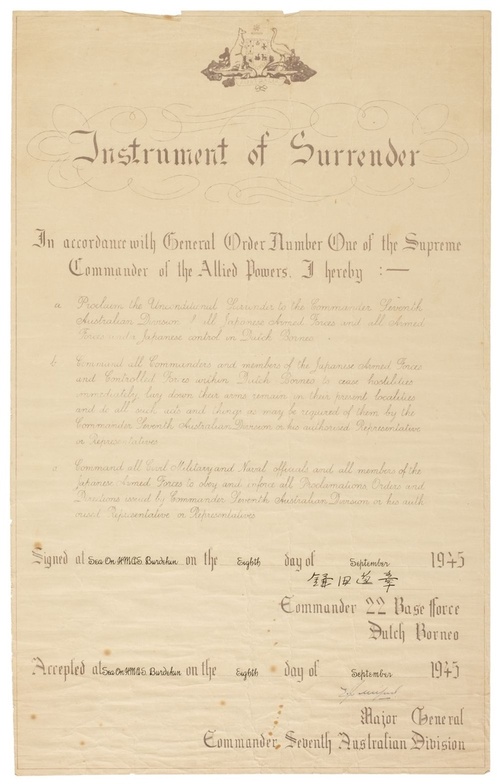 Instrument of Surrender
In accordance with General Order Number One of the Supreme
Commander of the Allied Powers, I hereby :—
a. Proclaim the Unconditional Surrender to the Commander Seventh
Australian Division of all Japanese Armed Forces and all Armed
Forces under Japanese control in Dutch Borneo.
b. Command all Commanders and members of the Japanese Armed Forces
and Controlled Forces within Dutch Borneo to cease hostilities
immediately, lay down their arms remain in their present localities
and to all such acts and things as may be required of them by the
Commander Seventh Australian Division or his authorised Representative
or Representatives
c. Command all Civil Military and Naval officials and all members of the
Japanese Armed Forces to obey and enforce all Proclamations Orders and
Directions issued by Commander Seventh Australian Division or his auth
orised Representative or Representatives
Signed at Sea On HMAS. Burdekin on the Eighth day of September 1945
鎌田道章
Commander 22 Base fforce
Dutch Borneo
Accepted at Sea On HMAS. Burdekin on the Eighth day of September 1945
Major General
Commander Seventh Australian Division